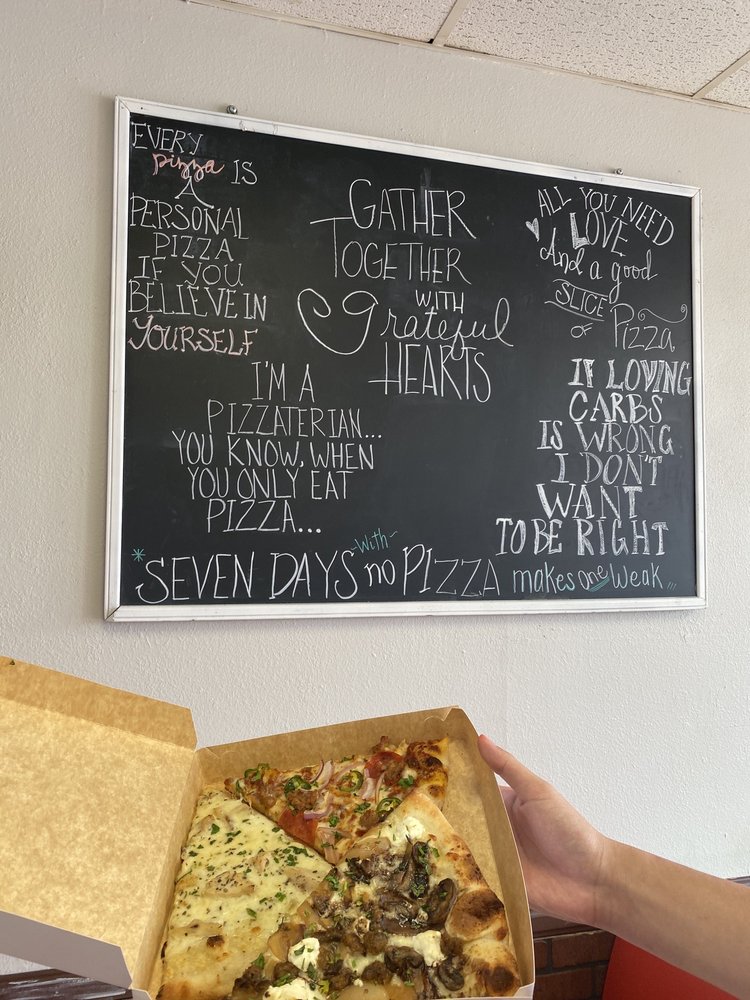 EVERY
pizza IS
A
PERSONAL
PIZZA
IF YOU
BELIEVE IN
YOURSELF
GATHER
TOGETHER
WITH
grateful
HEARTS
ALL YOU NEED
LOVE
And a good
SLICE
OF
Pizza
I'M A
PIZZATERIAN...
YOU KNOW, WHEN
YOU ONLY EAT
PIZZA...
IF LOVING
CARBS
IS WRONG
I DON'T
WANT
TO BE RIGHT
*SEVEN DAYS -With- no PIZZA makes one Weak...